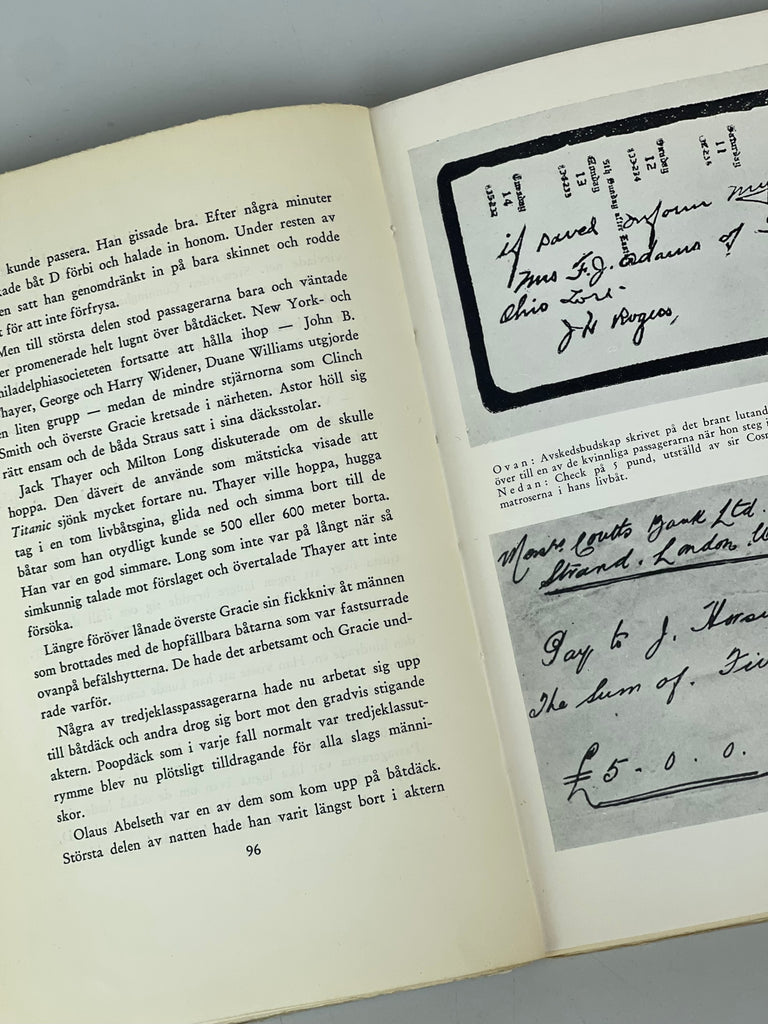 kunde passera. Han gissade bra. Efter några minuter
kade båt D förbi och halade in honom. Under resten av
en satt han genomdränkt in på bara skinnet och rodde
t för att inte förfrysa.
Men till största delen stod passagerarna bara och väntade
er promenerade helt lugnt över båtdäcket. New York- och
hiladelphiasocieteten fortsatte att hålla ihop — John B.
Thayer, George och Harry Widener, Duane Williams utgjorde
en liten grupp — medan de mindre stjärnorna som Clinch
Smith och överste Gracie kretsade i närheten. Astor höll sig
rätt ensam och de båda Straus satt i sina däcksstolar.
Jack Thayer och Milton Long diskuterade om de skulle
hoppa. Den dävert de använde som mätsticka visade att
Titanic sjönk mycket fortare nu. Thayer ville hoppa, hugga
tag i en tom livbåtsgina, glida ned och simma bort till de
båtar som han otydligt kunde se 500 eller 600 meter borta.
Han var en god simmare. Long som inte var på långt när så
simkunnig talade mot förslaget och övertalade Thayer att inte
försöka.
Längre föröver lånade överste Gracie sin fickkniv åt männen
som brottades med de hopfällbara båtarna som var fastsurrade
ovanpå befälshytterna. De hade det arbetsamt och Gracie und-
rade varför.
Några av tredjeklasspassagerarna hade nu arbetat sig upp
till båtdäck och andra drog sig bort mot den gradvis stigande
aktern. Poopdäck som i varje fall normalt var tredjeklassut-
rymme blev nu plötsligt tilldragande för alla slags männi-
skor.
Olaus Abelseth var en av dem som kom upp på båtdäck.
Största delen av natten hade han varit längst bort i aktern
96
Tuesday
14
Monday
13
5th Sunday after
Sunday
12
Saturday
11
if saved inform
Mrs F. J. Adams of
Ohio
J H Rogers,
Ovan: Avskedsbudskap skrivet på det brant lutand
över till en av de kvinnliga passagerarna när hon steg i
Nedan: Check på 5 pund, utställd av sir Cosm
matroserna i hans livbåt.
Messrs Coutts Bank Ltd.
Strand. London
Pay to J. Horsw
The Sum of. Fiv
£5-0.0.